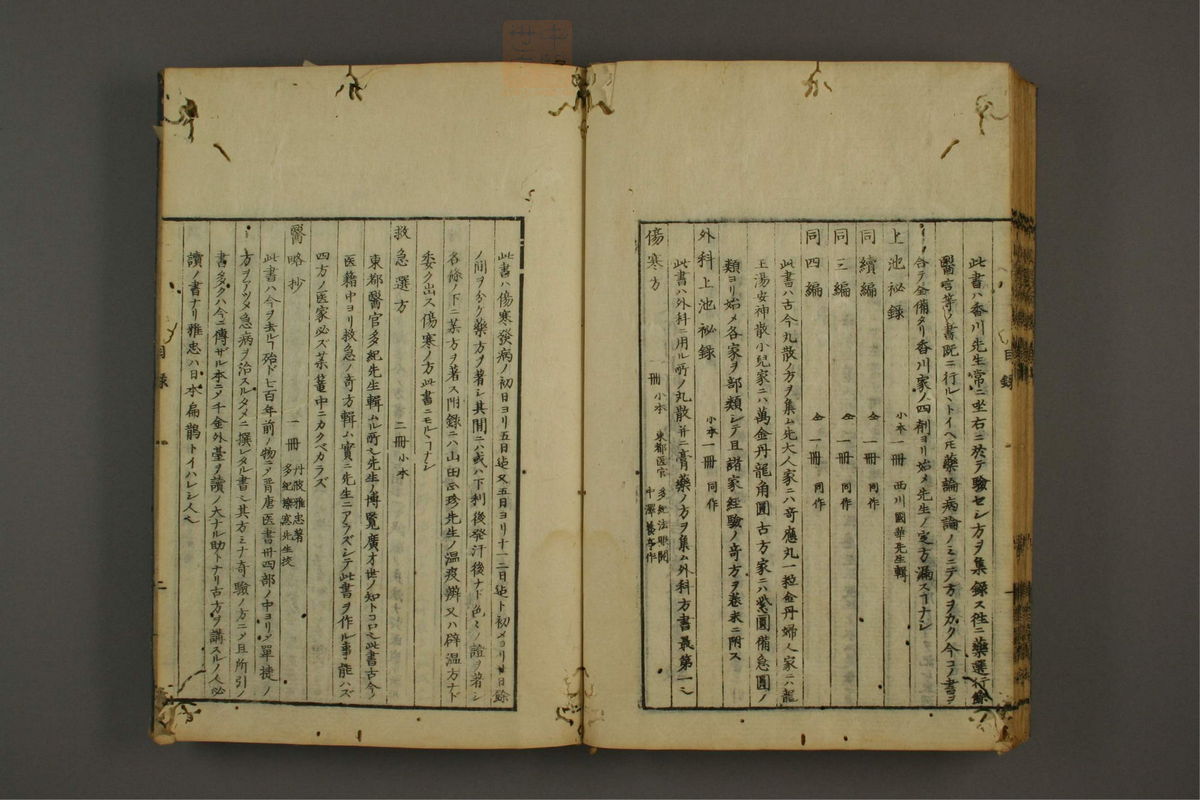 此書ハ香川先生常ニ坐右ニ於テ驗セシ方ヲ集録ス徃ニ藥選行餘
醫言等ノ書既ニ行ルトイヘ𪜈藥論病論ノミニテ方ヲカク今コノ書ヲ
合テ全備タリ香川家ノ四劑ヨリ始メ先生ノ定方漏スヿナシ
上池祕録 小本一冊 西川國華先生輯
同續編 仝一冊 同作
同三編 仝一冊 同作
同四編 仝一冊 同作
此書ハ古今丸散ノ方ヲ集ム先大人家ニハ奇應丸一粒金丹婦人家ニハ龍
王湯安神散小兒家ニハ萬金丹龍角圓古方家ニハ紫圓備急圓ノ
類ヨリ始メ各家ヲ部類シテ且諸家経驗ノ奇方ヲ卷末ニ附ス
外科上池祕録 小本一冊 同作
此書ハ外科ニ用ル所ノ丸散并ニ膏藥ノ方ヲ集ム外科方書最第一也
傷寒方 一冊 小本 東都医官 多紀法眼閲
中澤養亭作
目録 一
此書ハ傷寒發病ノ初日ヨリ五日迠又五日ヨリ十一二日迠ト初メヨリ廿日餘
ノ間ヲ分ケ藥方ヲ著シ其間ニハ或ハ下利後発汗後ナド色々ノ證ヲ著シ
各條ノ下ニ某方ヲ著ス附録ニハ山田正珍先生ノ温疫辨又ハ辟温方ナド
委ク出ス傷寒ノ方此書ニモルヽヿナシ
救急選方 二冊 小本
東都醫官多紀先生輯ムル所也先生ノ博覧廣才世ノ知トコロ也此書古今ノ
医籍中ヨリ救急ノ奇方輯ム實ニ先生ニアラズシテ此書ヲ作ル事能ハズ
四方ノ医家必ズ薬篭中ニカクベカラズ
醫略抄 一冊 丹波雅忠著
多紀桂窓先生挍
此書ハ今ヲ去ルヿ殆ド七百年前ノ物ニ〆晋唐医書卅四部ノ中ヨリ〆單捷ノ
方ヲアツメ急病ヲ治スルタメニ撰レタル書也其方ミナ奇驗ノ方ニ〆且所引ノ
書多クハ今ニ傳ザル本ニ〆千金外臺ヲ讀ノ大ナル助トナリ古方ヲ講スルノ人必
讀ノ書ナリ雅忠ハ日本扁鵲トイハレシ人也
目録 二